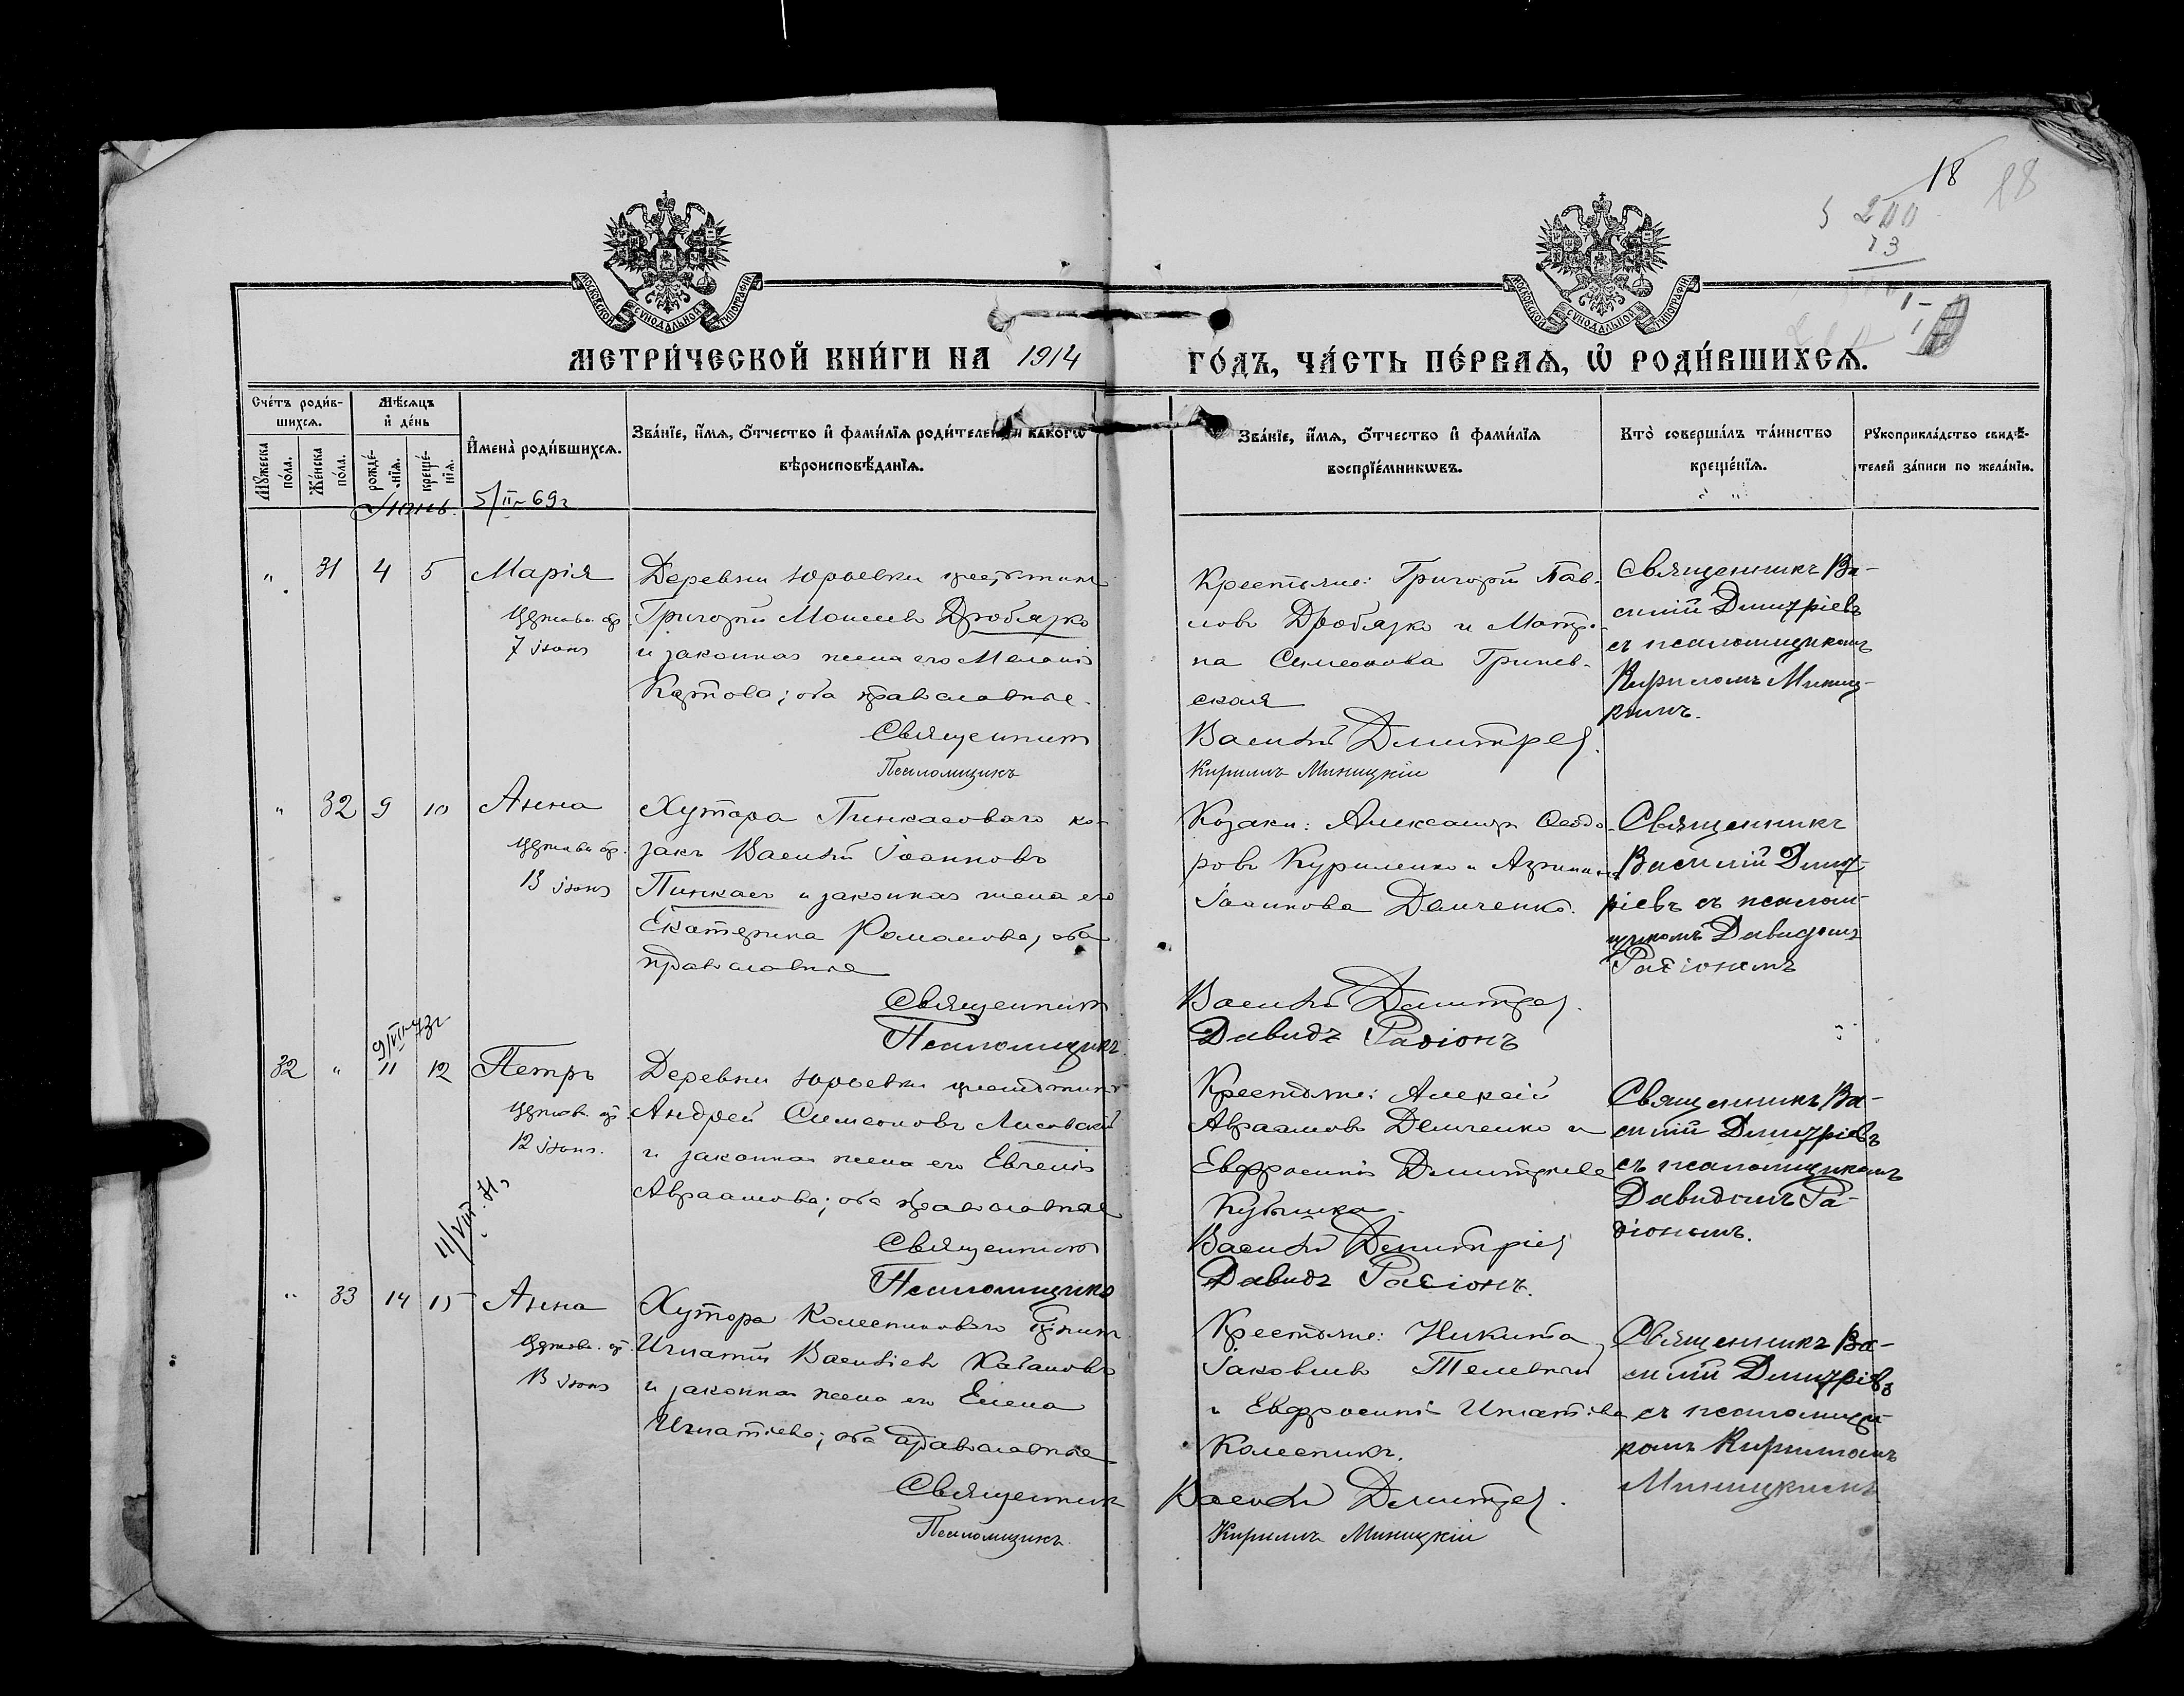 18
18
200
13
МОСКОВСКОЙ СѴНОДАЛЬНОЙ ТИПОГРАФІИ
МОСКОВСКОЙ СѴНОДАЛЬНОЙ ТИПОГРАФІИ
МЕТРИ́ЧЕСКОЙ КНИ́ГИ НА 1914 ГО́ДЪ, ЧА́СТЬ ПЕ́РВАѦ, Ѡ҆ РОДИ́ВШИХСѦ.
Сче́тъ роди́в-
шихсѧ.
Мѣ́сѧцъ
и҆ де́нь
Мꙋ́жеска по́ла.
Же́нска по́ла.
рожде́-
нїѧ.
креще́-
нїѧ.
И҆мена̀ роди́вшихсѧ.
Зва́нїе, и҆́мѧ, ѻ҆́тчество и҆ фами́лїѧ роди́телей и҆ како́гѡ
вѣроисповѣ́данїѧ.
Зва́нїе, и҆́мѧ, ѻ҆́тчество и҆ фами́лїѧ
воспрїе́мникѡвъ.
Кто̀ соверша́лъ та́инство
креще́нїѧ.
Рꙋкоприкла́дство свидѣ́-
телей за́писи по жела́нїю.
Іюнь.
5/II-69г
" 31 4 5 Марія
7 іюня
Деревни Юрьевки крестьянинъ
Григорій Моисеевъ Дробязко
и законная жена его Меланія
Карпова; оба православные.
Священникъ
Псаломщикъ
Крестьяне: Григорій Пав-
ловъ Дробязко и Матро-
на Симеонова Гринев-
ская
Василій Димитріев
Кириллъ Миницкій
Священникъ Ва-
силій Димитріевъ
съ псаломщикомъ
Кириломъ Миниц-
кимъ.
" 32 9 10 Анна
13 іюня
Хутора Пинкасоваго ко-
закъ Василій Іоанновъ
Пинкасъ и законная жена его
Екатерина Романова, оба
православные
Священникъ
Псаломщикъ
Козаки: Александръ Ѳеодо-
ровъ Куриленко и
Іоаннова Демченко.
Василій Димитріев
Давидъ Радіонъ
Священникъ
Василій Димит-
ріевъ съ псалом-
щикомъ Давидомъ
Радіономъ
32 " 11 12 Петръ
12 іюня.
Деревни Юрьевки крестьянинъ
Андрей Симеоновъ Лисовскій
и законная жена его Евгенія
Авраамова; оба православные
Священникъ
Псаломщикъ
Крестьяне: Алексій
Авраамовъ Демченко и
Евфросинія Димитріева
Василій Димитріев
Давидъ Радіонъ.
Священникъ Ва-
силій Димитріевъ
съ псаломщикомъ
Давидомъ Ра-
діономъ.
" 33 14 15 Анна
Хутора Колесниковаго
Игнатій Васильевъ Кабановъ
и законная жена его Елена
Игнатіева; оба православные
Священникъ
Псаломщикъ
Крестьяне: Никита
Іаковлевъ Телевный
и Евфросинія Игнатіева
Колесникъ.
Василій Димитріев
Кириллъ Миницкій
Священникъ Ва-
силій Димитріевъ
съ псаломщи-
комъ Кириломъ
Миницкимъ